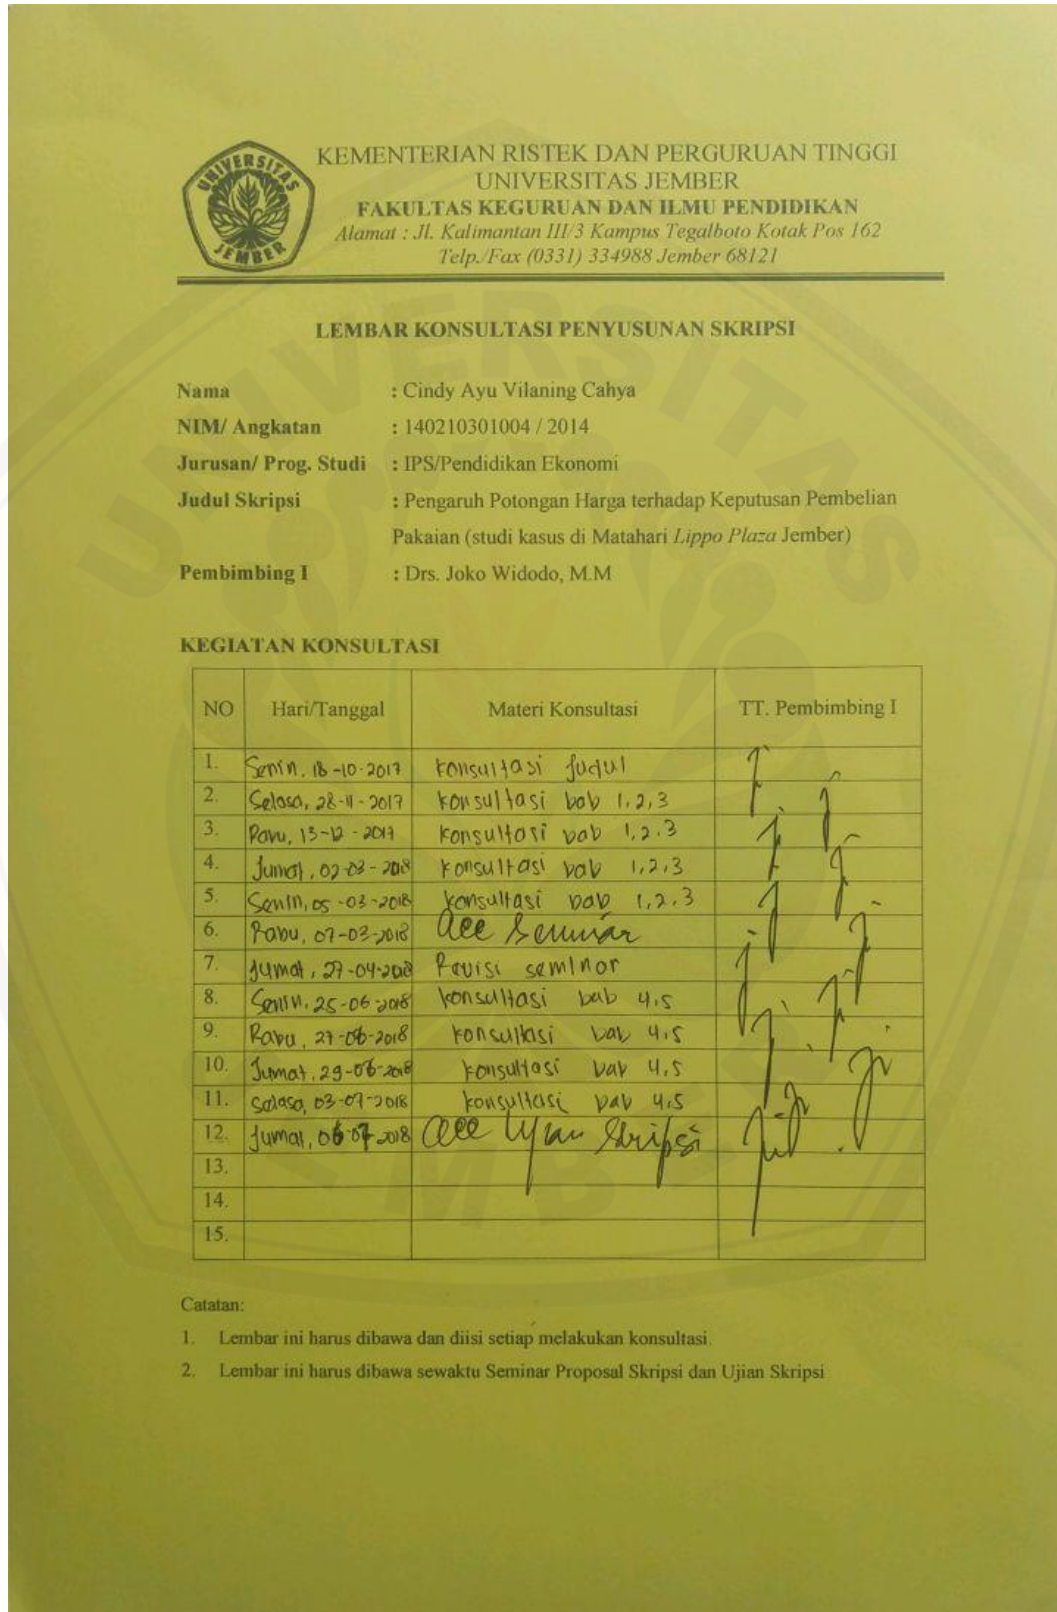 UNIVERSITAS JEMBER
KEMENTERIAN RISTEK DAN PERGURUAN TINGGI
UNIVERSITAS JEMBER
FAKULTAS KEGURUAN DAN ILMU PENDIDIKAN
Alamat : Jl. Kalimantan III/3 Kampus Tegalboto Kotak Pos 162
Telp./Fax (0331) 334988 Jember 68121
LEMBAR KONSULTASI PENYUSUNAN SKRIPSI
Nama : Cindy Ayu Vilaning Cahya
NIM/ Angkatan : 140210301004 / 2014
Jurusan/ Prog. Studi : IPS/Pendidikan Ekonomi
Judul Skripsi : Pengaruh Potongan Harga terhadap Keputusan Pembelian
Pakaian (studi kasus di Matahari Lippo Plaza Jember)
Pembimbing I : Drs. Joko Widodo, M.M
KEGIATAN KONSULTASI
NO Hari/Tanggal Materi Konsultasi TT. Pembimbing I
1. Senin, 18-10-2017 Konsultasi Judul
2. Selasa, 28-11-2017 Konsultasi bab 1,2,3
3. Rabu, 13-12-2017 Konsultasi bab 1,2,3
4. Jumat, 02-03-2018 Konsultasi bab 1,2,3
5. Senin, 05-03-2018 Konsultasi bab 1,2,3
6. Rabu, 07-03-2018 acc Seminar
7. Jumat, 27-04-2018 Revisi seminar
8. Senin, 25-06-2018 Konsultasi bab 4,5
9. Rabu, 27-06-2018 Konsultasi bab 4,5
10. Jumat, 29-06-2018 Konsultasi bab 4,5
11. Selasa, 03-07-2018 Konsultasi bab 4,5
12. Jumat, 06-07-2018 acc Ujian Skripsi
13.
14.
15.
Catatan:
1. Lembar ini harus dibawa dan diisi setiap melakukan konsultasi.
2. Lembar ini harus dibawa sewaktu Seminar Proposal Skripsi dan Ujian Skripsi